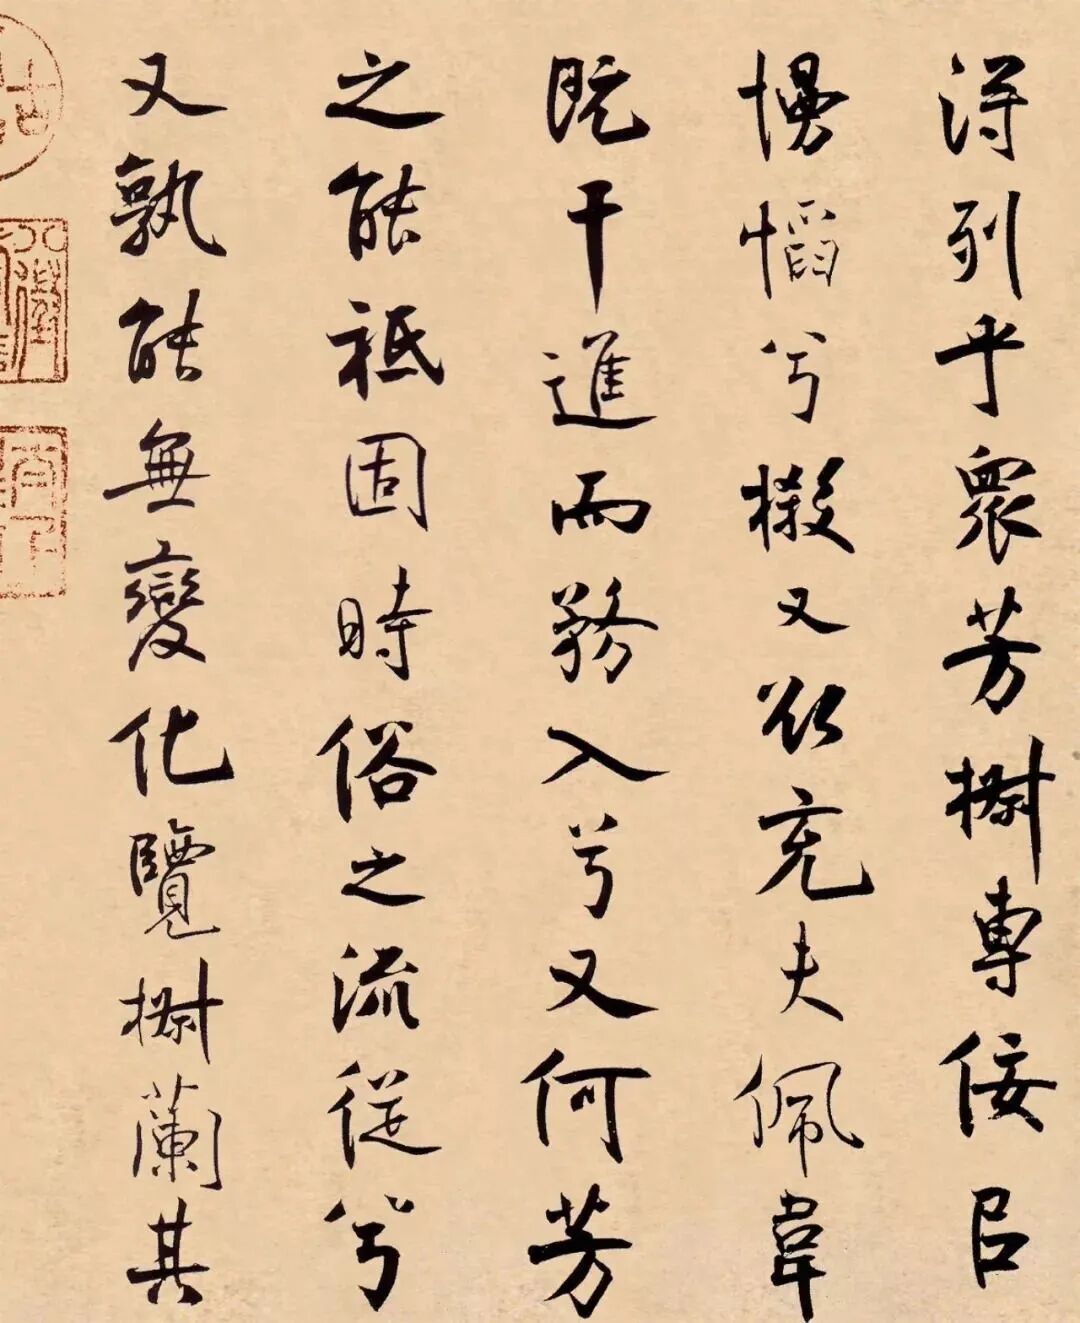 得列乎衆芳椒專佞㠯
慢慆兮樧又欲充夫佩韋
既干進而務入兮又何芳
之能祗固時俗之流從兮
又孰能無變化覽椒蘭其